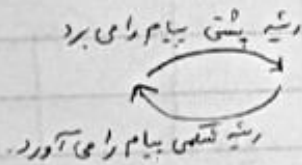 ریشه پشتی پیام را می برد
ریشه شکمی پیام را می آورد.